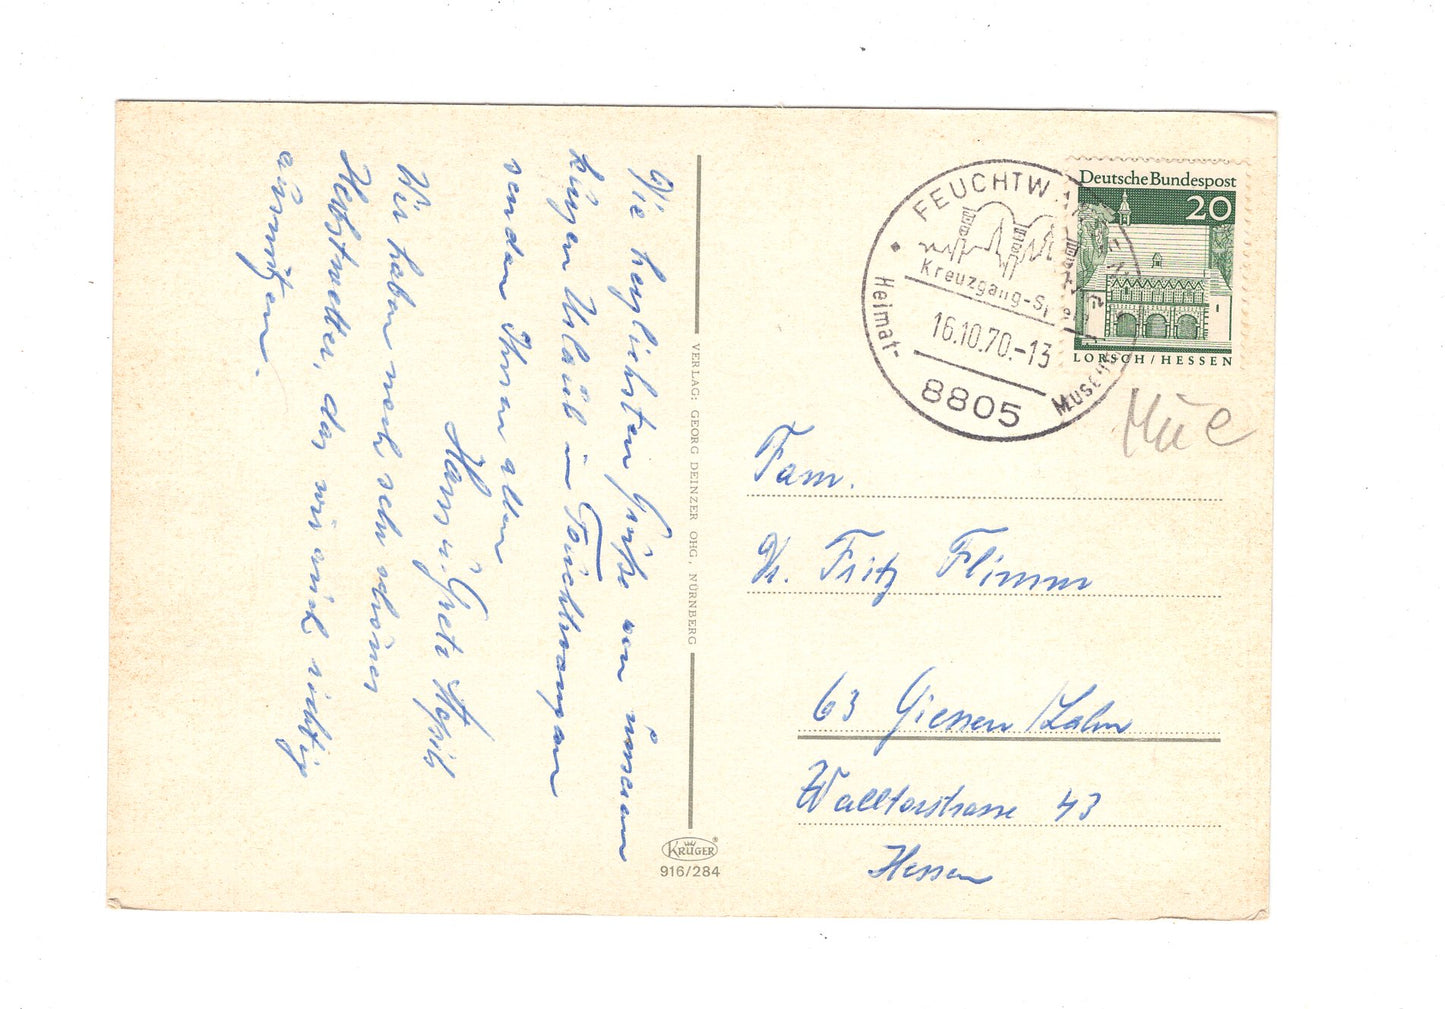 Die herzlichsten Grüße von unserem
kurzen Urlaub in Feuchtwangen
senden Ihnen allen
Hans u. Gretl
Wir haben noch sehr schönes
Herbstwetter, das wir auch richtig
ausnützen.
VERLAG: GEORG DEINZER OHG, NÜRNBERG
KRÜGER
916/284
FEUCHTWANGEN
Kreuzgang-Spiele
16.10.70.-13
Heimat-
Museum
8805
Deutsche Bundespost
20
LORSCH/HESSEN
Fam.
Dr. Fritz Flimm
63 Giessen/Lahn
Walltorstrasse 43
Hessen